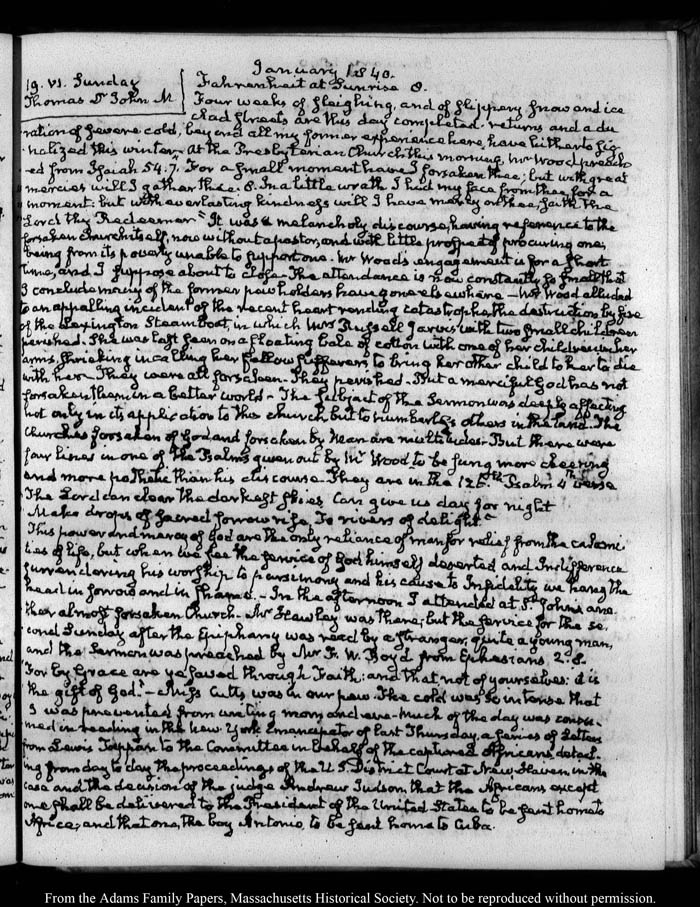 January 1840.
19. VI. Sunday
Thomas Dr John M
Fahrenheit at Sunrise 8.
Four weeks of sleighing, and of slippery snow and ice
clad streets are this day completed. returns and a du
ration of severe cold, beyond all my former experience here, have hitherto sig
nalized this winter. At the Presbyterian Church this morning, Mr Wood preach
ed from Isaiah 54. 7. "For a small moment have I forsaken thee; but with great
mercies will I gather thee. 8. In a little wrath I hid my face from thee, for a
moment: but with everlasting kindness will I have mercy on thee, saith the
Lord thy Redeemer" It was a melancholy discourse, having reference to the
forsaken church itself, now without a pastor, and with little prospect of procuring one,
being from its poverty unable to support one. Mr Wood's engagement is for a short
time, and I suppose about to close. The attendance is now constantly so small that
I conclude many of the former pew holders have gone elsewhere — Mr Wood alluded
to an appalling incident of the recent heart rending catastrophe, the destruction by fire
of the Lexington Steamboat, in which Mrs Russell Jarvis with two small children
perished. She was last seen on a floating bale of cotton with one of her children in her
arms, shrieking in calling her fellow sufferers to bring her other child to her to die
with her. They were all forsaken. They perished. But a merciful God has not
forsaken them in a better world. The subject of the Sermon was deeply affecting
not only in its application to this church, but to numberless others in the land. The
Churches forsaken of God, and forsaken by Man are multitudes. But there were
four lines in one of the Psalms given out by Mr Wood to be sung more cheering
and more pathetic than his discourse. They are in the 126th Psalm 4th verse
The Lord can clear the darkest skies Can give us day for night
Make drops of sacred sorrow rise, To rivers of delight"
This power and mercy of God are the only reliance of man for relief from the calami
ties of life, but when we see the service of God himself deserted and Indifference
surrendering his worship to parsimony and his cause to Infidelity we hang the
head in sorrow and in shame. In the afternoon I attended at St John's ano
ther almost forsaken Church. Mr Hawley was there, but the service for the se
cond Sunday after the Epiphany was read by a stranger, quite a young man,
and the Sermon was preached by Mr F. W. Boyd from Ephesians 2. 8.
"For by Grace are ye saved through Faith; and that not of yourselves: it is
the gift of God." — Miss Cutts was in our pew. The cold was so intense that
I was prevented from writing morn and eve. Much of the day was consu
med in reading in the New York Emancipator of last Thursday, a series of Letters
from Lewis Tappan to the Committee in behalf of the captured Africans, detail
ing from day to day the proceedings of the U. S. District Court at New Haven, in the
case and the decision of the judge Andrew Judson, that the Africans except
one shall be delivered to the President of the United States to be sent home to
Africa, and that one, the boy Antonio, to be sent home to Cuba.
From the Adams Family Papers, Massachusetts Historical Society. Not to be reproduced without permission.